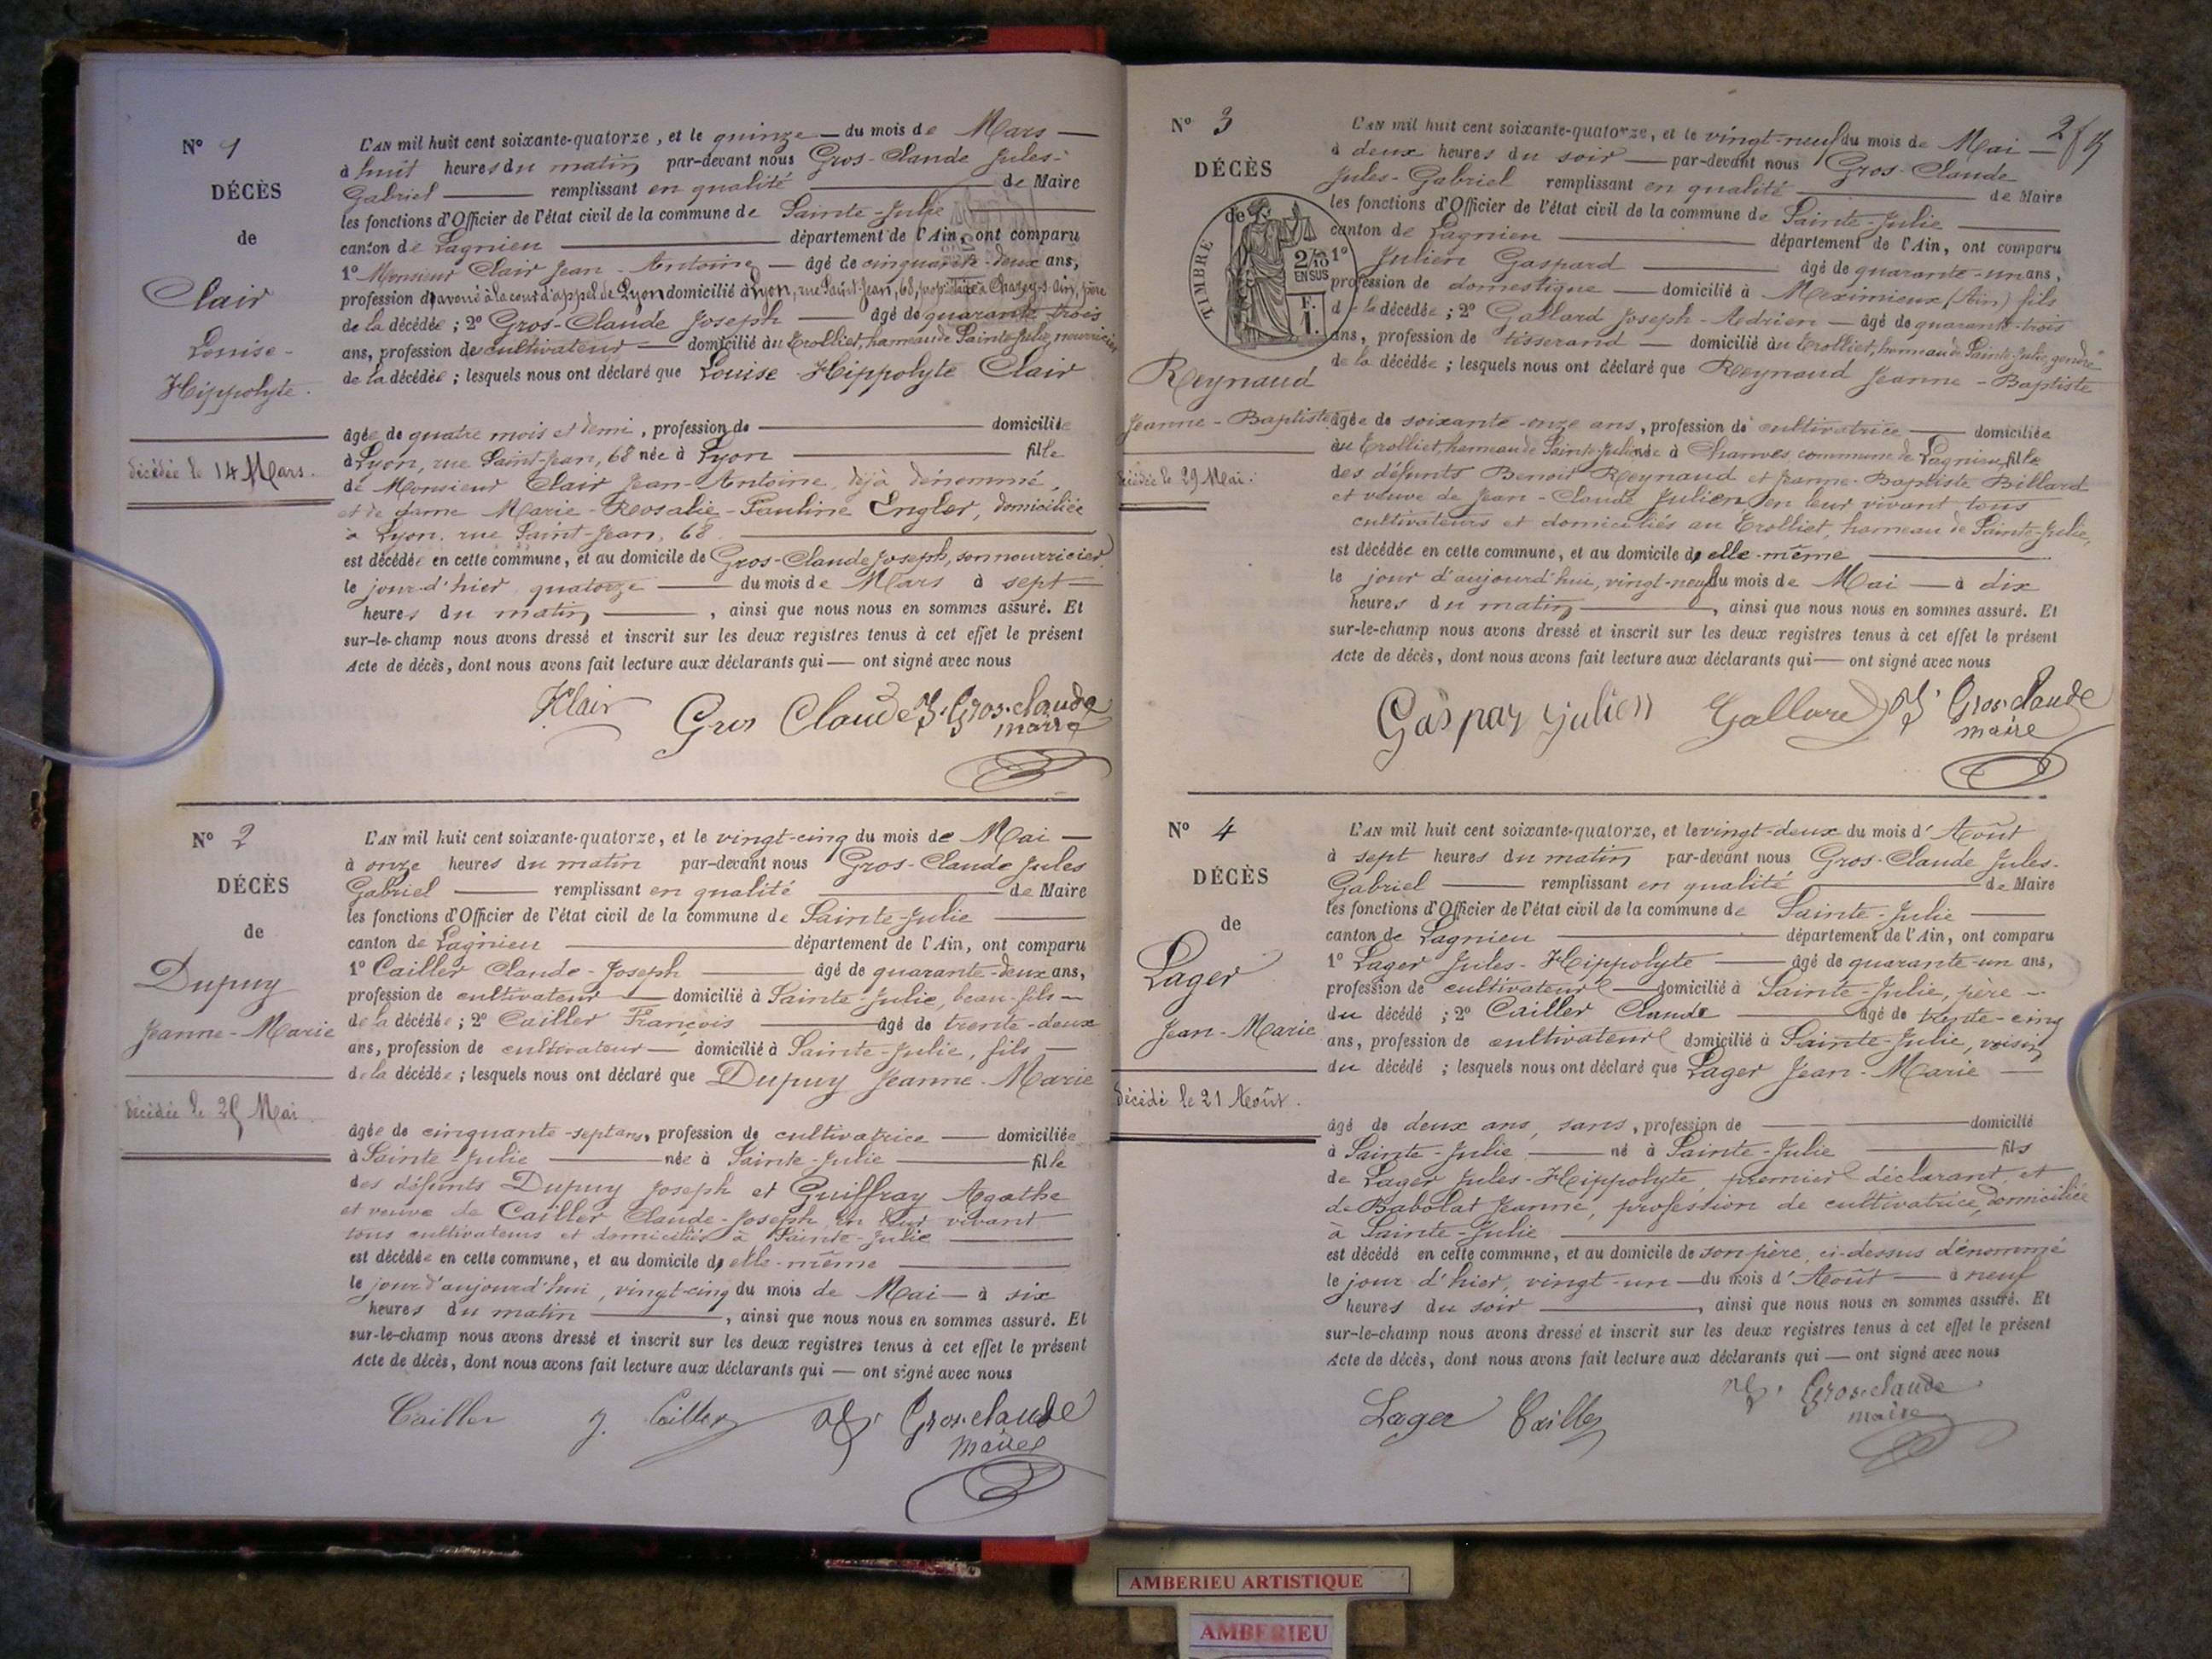 N° 1
DÉCÈS
de
Clair
Louise-
Hippolyte.
décédée le 14 Mars.
L'AN mil huit cent soixante-quatorze, et le quinze du mois de Mars
à huit heures du matin par-devant nous Gros-Claude Jules-
Gabriel remplissant en qualité de Maire
les fonctions d'Officier de l'état civil de la commune de Sainte-Julie
canton de Lagnieu département de l'Ain, ont comparu
1° Monsieur Clair Jean-Antoine âgé de cinquante-deux ans,
profession d'avoué à la cour d'appel de Lyon domicilié à Lyon, rue Saint-Jean, 68, propriétaire à Chazey-s-Ain, père
de la décédée ; 2° Gros-Claude Joseph âgé de quarante-trois
ans, profession de cultivateur domicilié au Trolliet, hameau de Sainte-Julie, nourricier
de la décédée ; lesquels nous ont déclaré que Louise Hippolyte Clair
âgée de quatre mois et demi, profession de domiciliée
à Lyon, rue Saint-Jean, 68 née à Lyon fille
de Monsieur Clair Jean-Antoine, déjà dénommé,
et de dame Marie-Rosalie-Pauline Engler, domiciliée
à Lyon, rue Saint-Jean, 68.
est décédée en cette commune, et au domicile de Gros-Claude Joseph, son nourricier,
le jour d'hier quatorze du mois de Mars à sept
heures du matin, ainsi que nous nous en sommes assuré. Et
sur-le-champ nous avons dressé et inscrit sur les deux registres tenus à cet effet le présent
Acte de décès, dont nous avons fait lecture aux déclarants qui — ont signé avec nous
Clair Gros Claude J. Gros-claude
maire
N° 2
DÉCÈS
de
Dupuy
Jeanne-Marie
décédée le 25 Mai
L'AN mil huit cent soixante-quatorze, et le vingt-cinq du mois de Mai
à onze heures du matin par-devant nous Gros-Claude Jules
Gabriel remplissant en qualité de Maire
les fonctions d'Officier de l'état civil de la commune de Sainte-Julie
canton de Lagnieu département de l'Ain, ont comparu
1° Cailler Claude-Joseph âgé de quarante-deux ans,
profession de cultivateur domicilié à Sainte-Julie, beau-fils
de la décédée ; 2° Cailler François âgé de trente-deux
ans, profession de cultivateur domicilié à Sainte-Julie, fils
de la décédée ; lesquels nous ont déclaré que Dupuy Jeanne-Marie
âgée de cinquante-sept ans, profession de cultivatrice domiciliée
à Sainte-Julie née à Sainte-Julie fille
des défunts Dupuy Joseph et Guiffray Agathe
et veuve de Cailler Claude-Joseph, en leur vivant
tous cultivateurs et domiciliés à Sainte-Julie
est décédée en cette commune, et au domicile d'elle-même
le jour d'aujourd'hui, vingt-cinq du mois de Mai à six
heures du matin, ainsi que nous nous en sommes assuré. Et
sur-le-champ nous avons dressé et inscrit sur les deux registres tenus à cet effet le présent
Acte de décès, dont nous avons fait lecture aux déclarants qui — ont signé avec nous
Cailler J. Cailler Gros-claude
maire
2
N° 3
DÉCÈS
de
TIMBRE
2/10
EN SUS
F.
1.
Reynaud
Jeanne-Baptiste
décédée le 29 Mai.
L'AN mil huit cent soixante-quatorze, et le vingt-neuf du mois de Mai
à deux heures du soir par-devant nous Gros-Claude
Jules-Gabriel remplissant en qualité de Maire
les fonctions d'Officier de l'état civil de la commune de Sainte-Julie
canton de Lagnieu département de l'Ain, ont comparu
1° Julien Gaspard âgé de quarante-un ans,
profession de domestique domicilié à Meximieux (Ain) fils
de la décédée ; 2° Gallard Joseph-Adrien âgé de quarante-trois
ans, profession de tisserand domicilié au Trolliet, hameau de Sainte-Julie, gendre
de la décédée ; lesquels nous ont déclaré que Reynaud Jeanne-Baptiste
âgée de soixante-onze ans, profession de cultivatrice domiciliée
au Trolliet, hameau de Sainte-Julie née à Charves commune de Lagnieu, fille
des défunts Benoit Reynaud et Jeanne-Baptiste Billard
et veuve de Jean-Claude Julien, en leur vivant tous
cultivateurs et domiciliés au Trolliet, hameau de Sainte-Julie,
est décédée en cette commune, et au domicile d'elle-même
le jour d'aujourd'hui, vingt-neuf du mois de Mai à dix
heures du matin, ainsi que nous nous en sommes assuré. Et
sur-le-champ nous avons dressé et inscrit sur les deux registres tenus à cet effet le présent
Acte de décès, dont nous avons fait lecture aux déclarants qui — ont signé avec nous
Gaspar Julien Gallard Gros-claude
maire
N° 4
DÉCÈS
de
Lager
Jean-Marie
décédé le 21 Août.
L'AN mil huit cent soixante-quatorze, et le vingt-deux du mois d'Août
à sept heures du matin par-devant nous Gros-Claude Jules-
Gabriel remplissant en qualité de Maire
les fonctions d'Officier de l'état civil de la commune de Sainte-Julie
canton de Lagnieu département de l'Ain, ont comparu
1° Lager Jules-Hippolyte âgé de quarante-un ans,
profession de cultivateur domicilié à Sainte-Julie, père
du décédé ; 2° Cailler Claude âgé de trente-cinq
ans, profession de cultivateur domicilié à Sainte-Julie, voisin
du décédé ; lesquels nous ont déclaré que Lager Jean-Marie
âgé de deux ans, sans, profession de domicilié
à Sainte-Julie né à Sainte-Julie fils
de Lager Jules-Hippolyte, premier déclarant, et
de Babolat Jeanne, profession de cultivatrice, domiciliée
à Sainte-Julie
est décédé en cette commune, et au domicile de son père, ci-dessus dénommé
le jour d'hier, vingt-un du mois d'Août à neuf
heures du soir, ainsi que nous nous en sommes assuré. Et
sur-le-champ nous avons dressé et inscrit sur les deux registres tenus à cet effet le présent
Acte de décès, dont nous avons fait lecture aux déclarants qui — ont signé avec nous
Lager Cailler Gros-claude
maire
AMBERIEU ARTISTIQUE
AMBERIEU